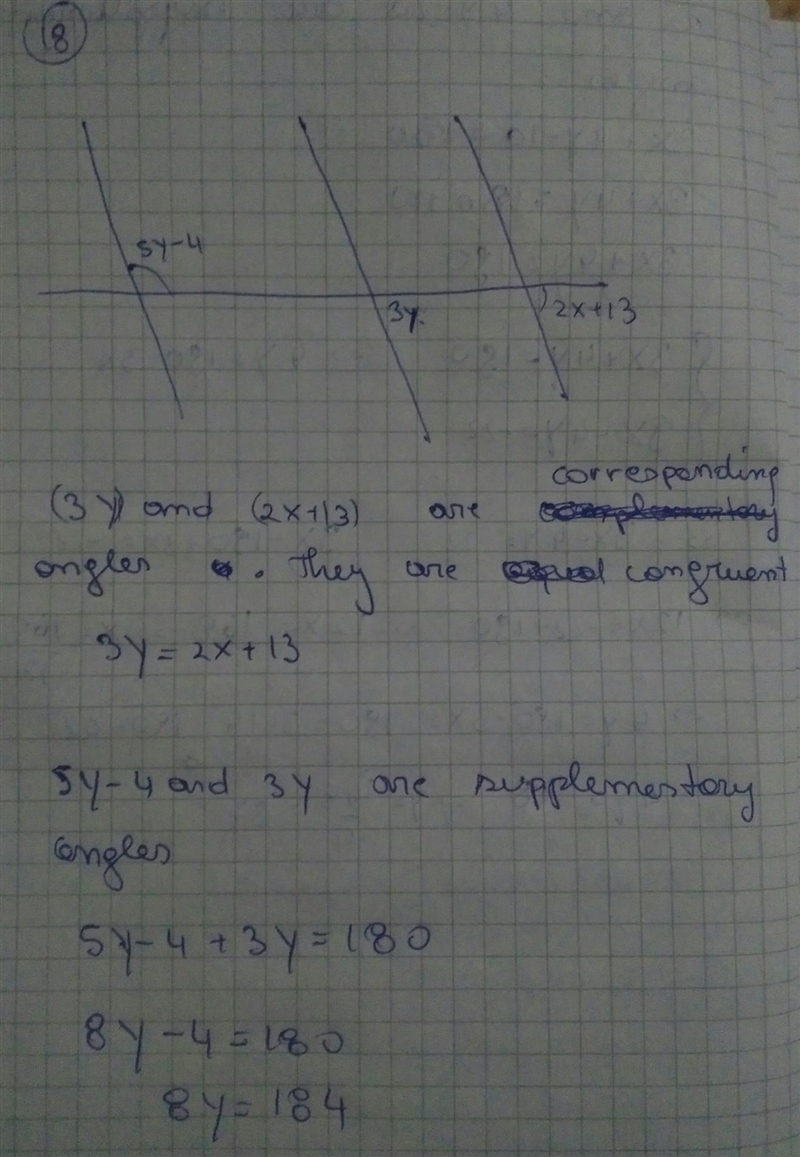 18
5y-4
3y.
2x+13
corresponding
(3y) and (2x+13) are
angles . They are congruent
3y = 2x + 13
5y-4 and 3y are supplementary
angles
5y-4 + 3y = 180
8y - 4 = 180
8y = 184